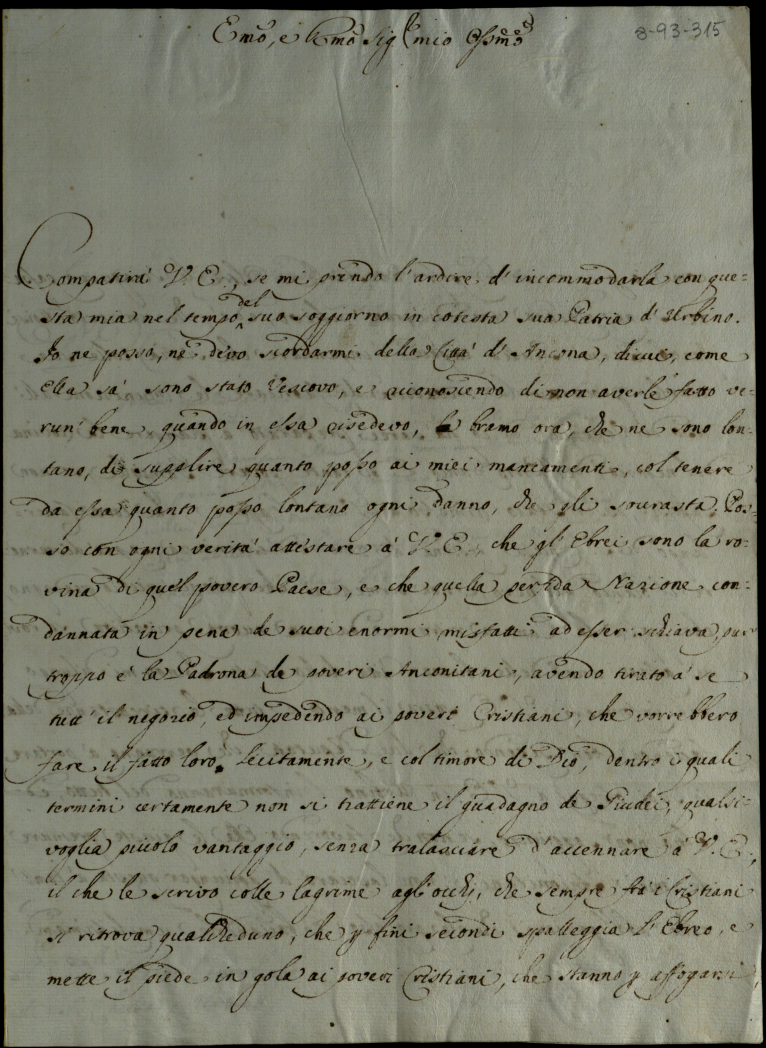 8-93-315
Emo, e Rmo Sigr mio Ossmo
Compatirà V. E., se mi prendo l'ardire d'incommodarla con que-
sta mia nel tempo del suo soggiorno in cotesta sua Patria d'Urbino.
Io ne posso, nè devo scordarmi della Città d'Ancona, di cui, come
Ella sà sono stato Vescovo, e riconoscendo di non averle fatto ve-
run bene quando in essa risedevo, bramo ora, che ne sono lon-
tano, di supplire quanto posso ai miei mancamenti, col tenere
da essa quanto posso lontano ogni danno, che gli sovrasta. Pos-
so con ogni verità attestare à V. E., che gl'Ebrei sono la ro-
vina di quel povero Paese, e che quella perfida Nazione con-
dannata in pena de suoi enormi misfatti ad esser schiava, pur
troppo è la Padrona de poveri Anconitani, avendo tirato à se
tutt'il negozio, ed impedendo ai poveri Cristiani, che vorrebbero
fare il fatto loro lecitamente, e col timore di Dio, dentro i quali
termini certamente non si trattiene il guadagno de Giudei, qualsi-
voglia piccolo vantaggio, senza tralasciare d'accennare à V. E.,
il che le scrivo colle lagrime agl'occhi, che sempre frà i Cristiani
si ritrova qualcheduno, che p fini secondi spalleggia l'Ebreo, e
mette il piede in gola ai poveri Cristiani, che stanno p affogarsi,